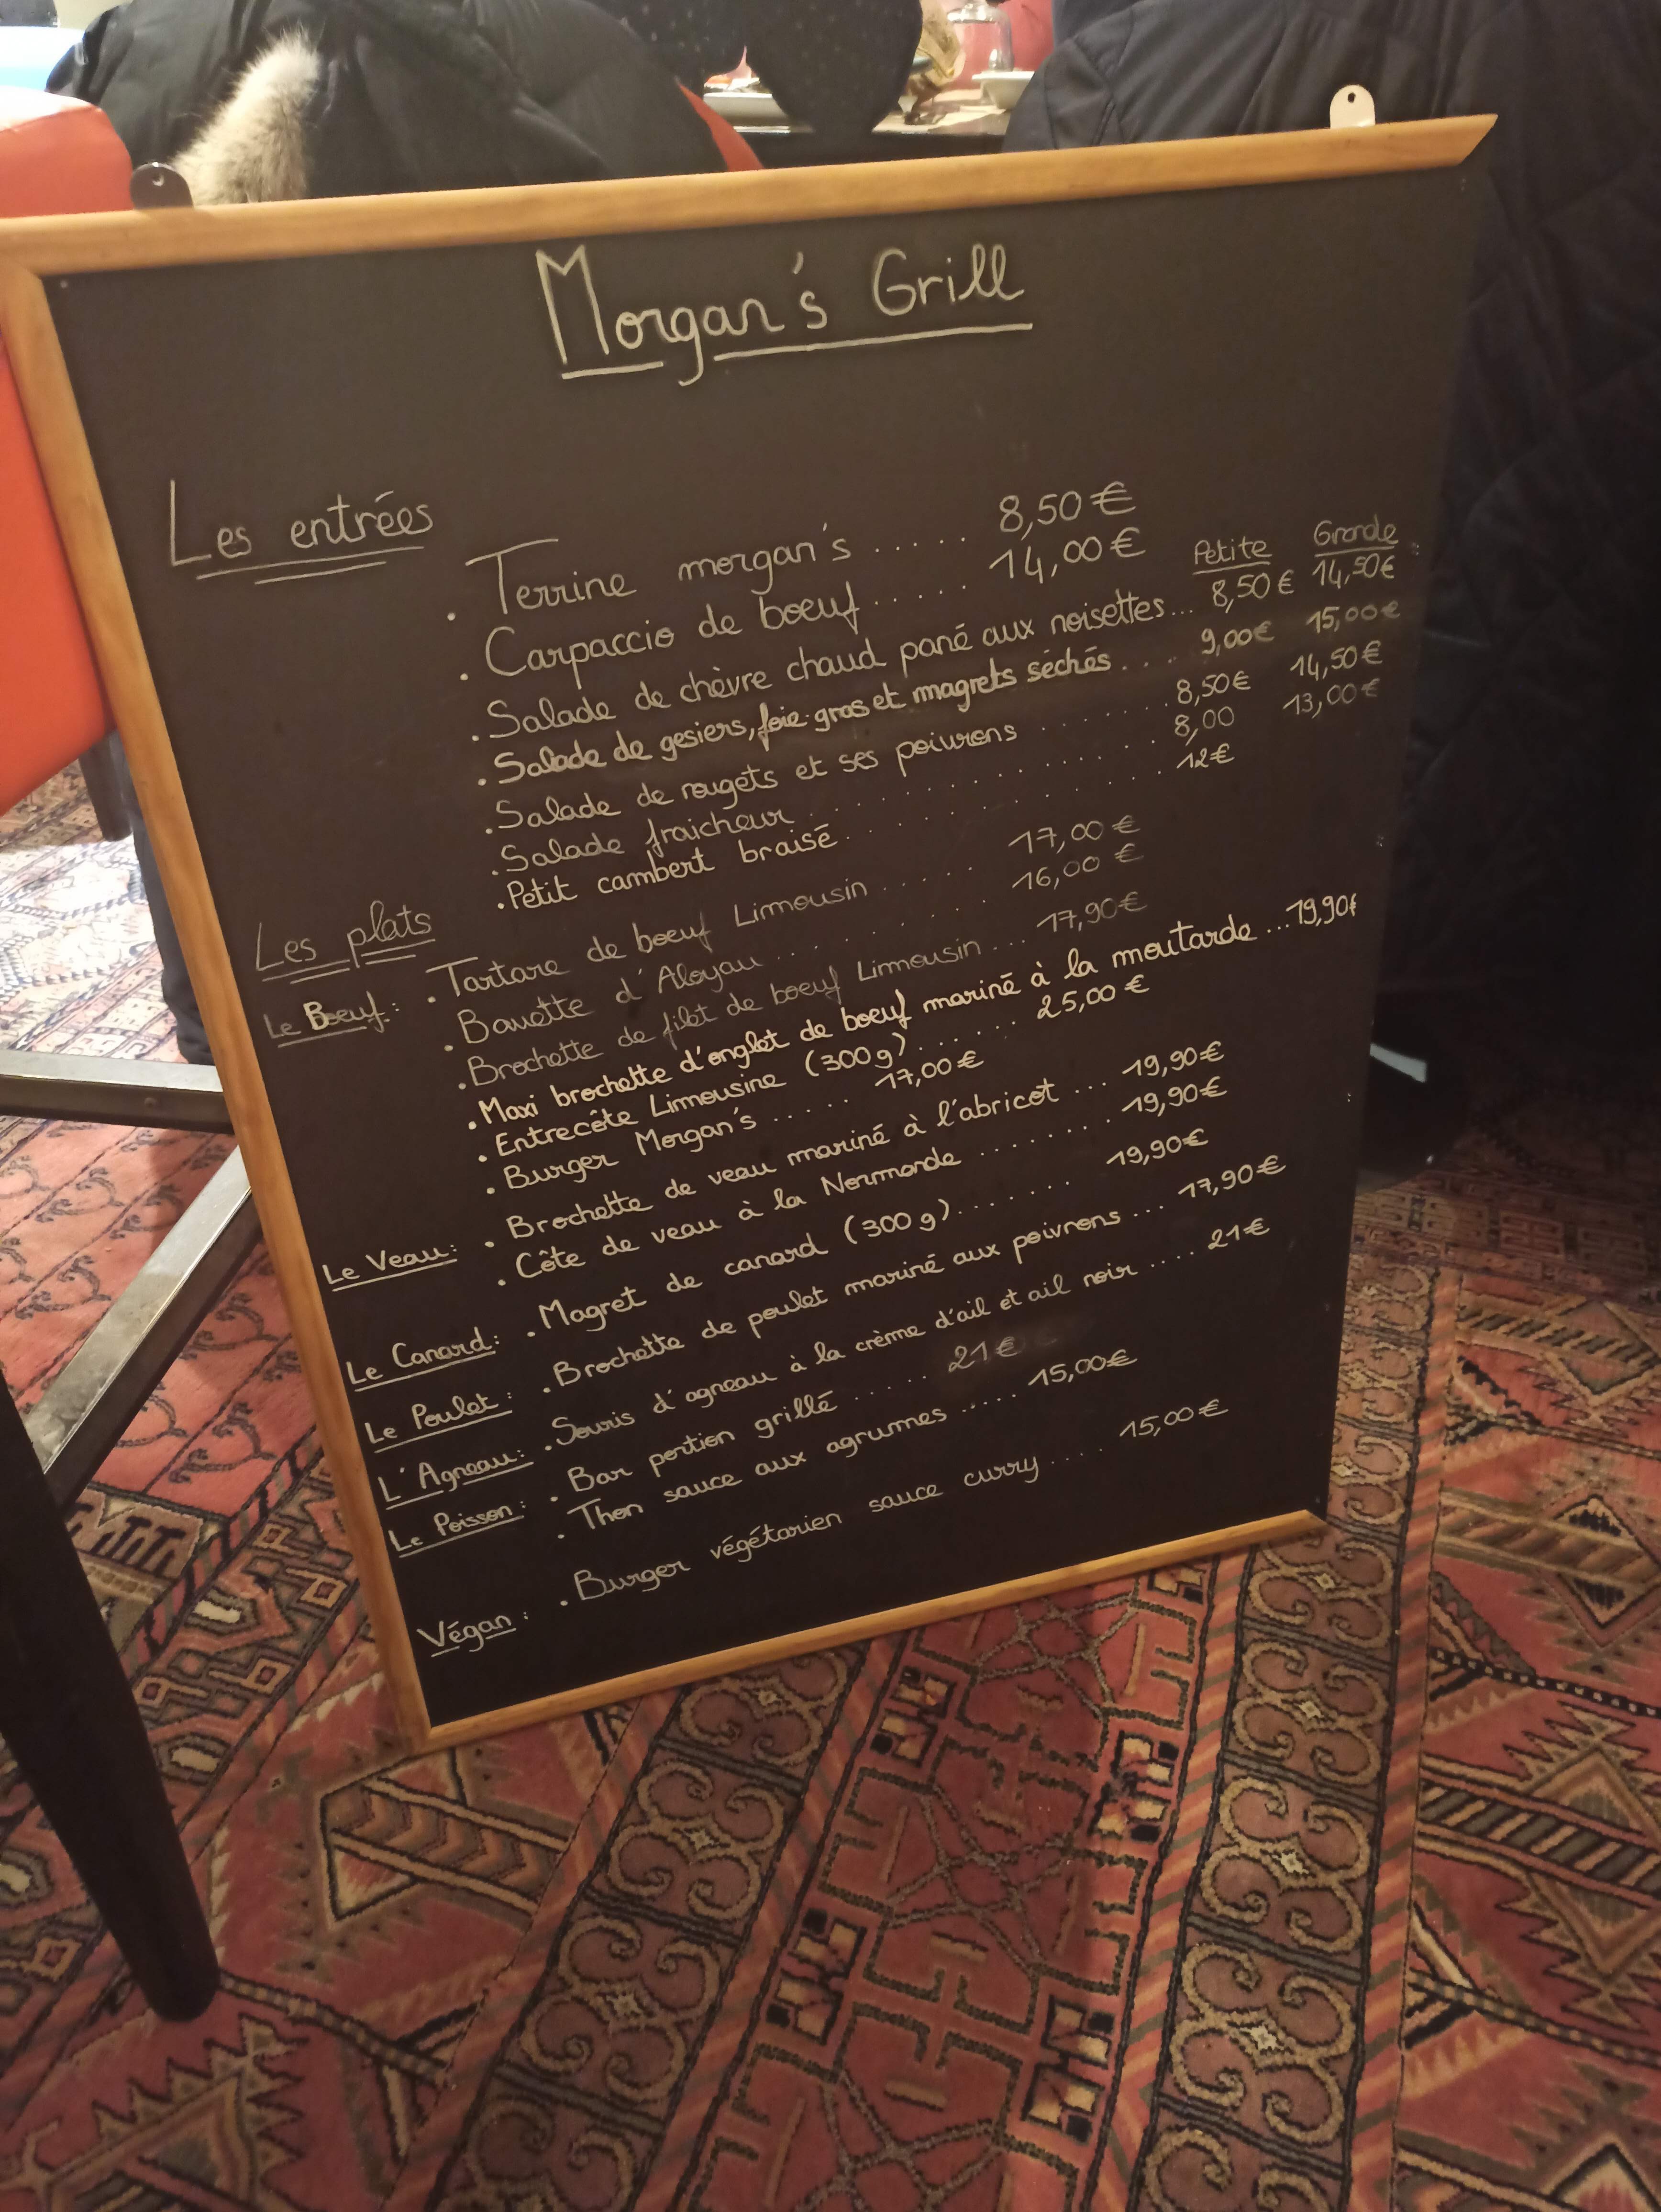 Morgan's Grill
Les entrées
. Terrine morgan's ..... 8,50 €
. Carpaccio de boeuf ..... 14,00 €
Petite Grande
. Salade de chèvre chaud pané aux noisettes... 8,50 € 14,50€
. Salade de gesiers, foie gras et magrets séchés .... 9,00€ 15,00€
. Salade de rougets et ses poivrons ........ 8,50€ 14,50€
. Salade fraicheur ............ 8,00 13,00€
. Petit cambert braisé ............ 12€
Les plats
Le Boeuf: . Tartare de boeuf Limousin ..... 17,00 €
. Bavette d'Aloyau ......... 16,00 €
. Brochette de filet de boeuf Limousin ... 17,90€
. Maxi brochette d'onglet de boeuf mariné à la moutarde ...19,90€
. Entrecôte Limousine (300g) ...... 25,00 €
. Burger Morgan's ..... 17,00 €
Le Veau: . Brochette de veau mariné à l'abricot ... 19,90€
. Côte de veau à la Normande ........ 19,90€
Le Canard: . Magret de canard (300 g) ...... 19,90€
Le Poulet: . Brochette de poulet mariné aux poivrons ... 17,90€
L'Agneau: . Souris d'agneau à la crème d'ail et ail noir .... 21€
Le Poisson: . Bar portion grillé ...... 21€
. Thon sauce aux agrumes ...... 15,00€
Végan: . Burger végétarien sauce curry .... 15,00€